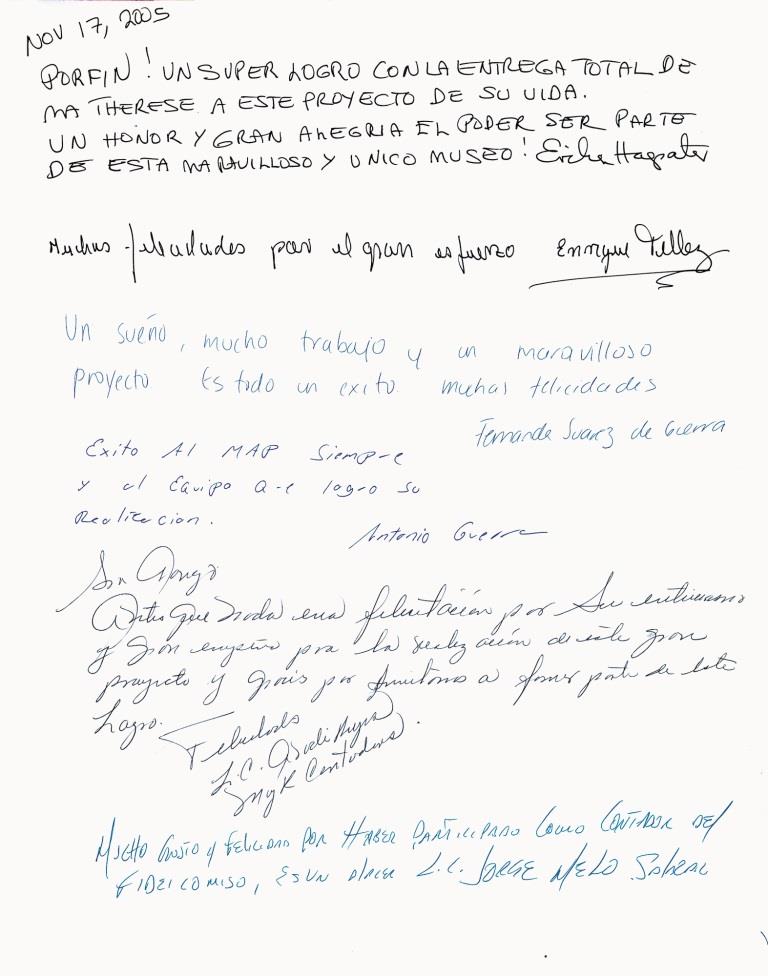 NOV 17, 2005
PORFIN! UN SUPER LOGRO CON LA ENTREGA TOTAL DE
MA THERESE A ESTE PROYECTO DE SU VIDA.
UN HONOR Y GRAN ALEGRIA EL PODER SER PARTE
DE ESTA MARAVILLOSO Y UNICO MUSEO!
Muchas felicidades por el gran esfuerzo Enrique Tellez
Un sueño, mucho trabajo y un maravilloso
proyecto Es todo un exito. muchas felicidades
Fernanda Suarez de Guerra
Exito Al MAP Siempre
y al Equipo que logro su
Realizacion.
Antonio Guerra
Antes que nada una felicitación por su entusiasmo
y gran empeño para la realización de este gran
proyecto y gracias por invitarnos a formar parte de este
Logro.
Felicidades
L.C.
Contadores.
MUCHO GUSTO y FELICIDAD POR HABER PARTICIPADO COMO CONTADOR DEL
FIDEICOMISO, ES UN PLACER L.C. JORGE MELO SOBRAL